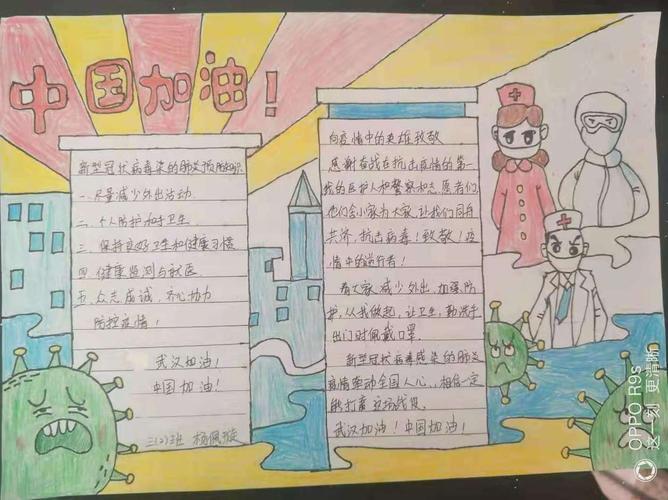 中国加油！
新型冠状病毒感染的肺炎预防知识
一、尽量减少外出活动
二、个人防护和手卫生
三、保持良好卫生和健康习惯
四、健康监测与就医
五、众志成诚，齐心协力
防控疫情！
武汉加油！
中国加油！
三(2)班 杨佩璇
向疫情中的英雄致敬
感谢奋战在抗击疫情的第一
线的医护人和警察和志愿者们，
他们舍小家为大家，让我们同舟
共济，抗击病毒！致敬！疫
情中的逆行者！
看大家减少外出，加强防
护，从我做起，让卫生，勤洗手
出门时佩戴口罩。
新型冠状病毒感染的肺炎
疫情牵动全国人心，相信一定
能打赢这场战役。
武汉加油！中国加油！
OPPO R9s
这一刻 更清晰